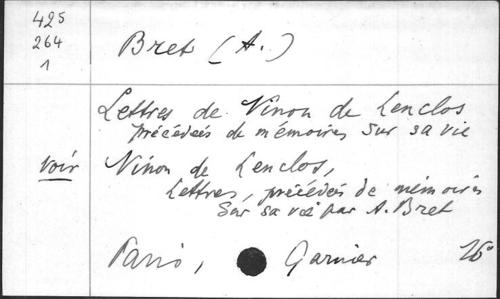 425
264
1
Bret (A.)
Lettres de Ninon de Lenclos
précédées de mémoires sur sa vie
voir Ninon de Lenclos,
Lettres, précédés de mémoires
sur sa vie par A. Bret
Paris, Garnier 16°